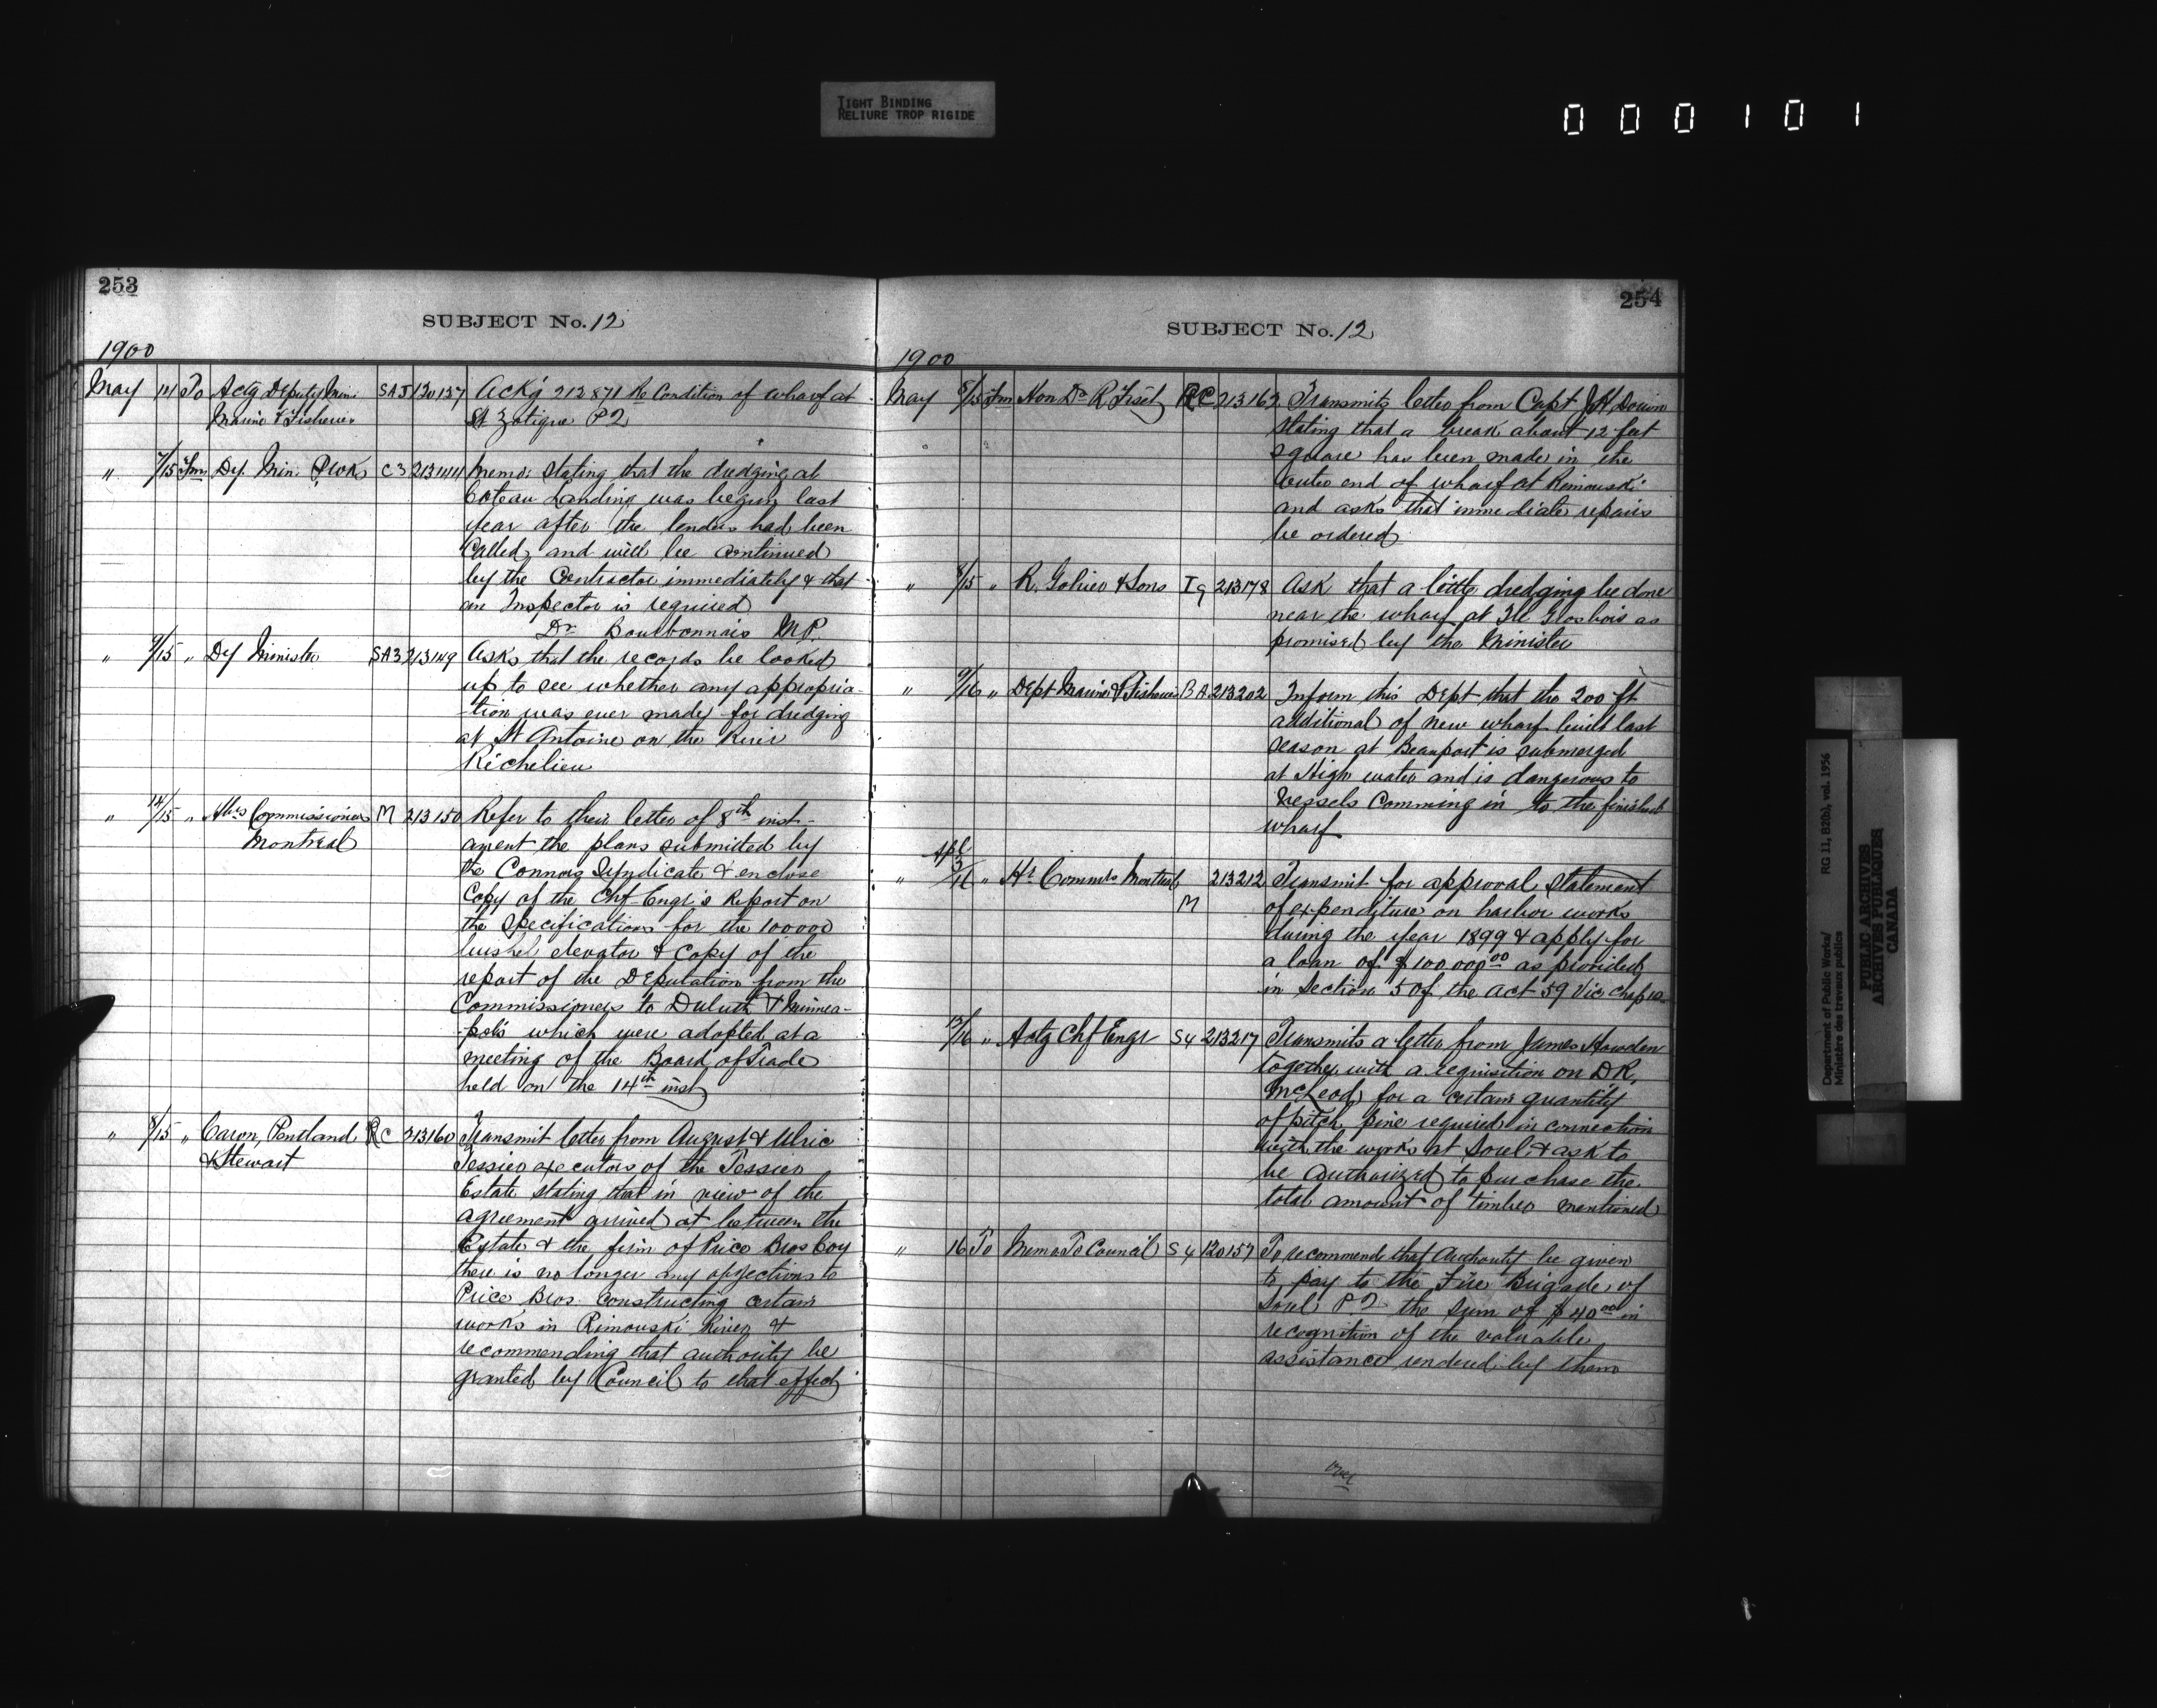 TIGHT BINDING
RELIURE TROP RIGIDE
000101
253
SUBJECT No. 12
1900
May 14 To Actg Deputy Min. SA3 120137 Ackg 212871 Re Condition of wharf at
Marine & Fisheries St Zotique P2
" 7/15 Fm Dy. Min. P. Wks C3 Memo: stating that the dredging at
Coteau Landing was begun last
year after the tenders had been
called, and will be continued
by the Contractor immediately & that
an Inspector is required
Dr Bourbonnais M.P.
" 9/15 " Dy Minister SA3 213149 Asks that the records be looked
up to see whether any appropria-
-tion was ever made for dredging
at St Antoine on the River
Richelieu
" 14/15 " Hbrs Commissioners M 213150 Refer to their letter of 8th inst-
Montreal anent the plans submitted by
the Connors Syndicate & enclose
Copy of the Chf-Engr's Report on
the Specifications for the 100000
bushel elevator & Copy of the
report of the Deputation from the
Commissioners to Duluth & Minnea-
-polis which were adopted at a
meeting of the Board of Trade
held on the 14th inst
" 8/15 " Caron, Pentland RC 213160 Transmit letter from August & Ulric
& Stewart Tessier executors of the Tessier
Estate stating that in view of the
agreement arrived at between the
Estate & the firm of Price Bros Coy
there is no longer any objections to
Price Bros. Constructing certain
works in Rimouski River &
recommending that authority be
granted by Council to that effect
254
SUBJECT No. 12
1900
May 8/15 Fm Hon Dr R Fiset RC 213162 Transmits letter from Capt J H
stating that a break about 12 feet
square has been made in the
outer end of wharf at Rimouski
and asks that immediate repairs
be ordered
" 8/15 " R. & Sons Ig 213178 Ask that a little dredging be done
near the wharf at Ile Grosbois as
promised by the Minister
" 9/16 " Dept Marine & Fisheries BA 213202 Inform this Dept that the 200 ft
additional of new wharf built last
season at Beauport is submerged
at High water and is dangerous to
Vessels Comming in to the finished
wharf
Apl
" 3/16 " Hr Commrs Montreal 213212 Transmit for approval Statement
M of expenditure on harbor works
during the year 1899 & apply for
a loan of $100.000 00 as provided
in Section 5 of the act 59 Vic Chap 10
12/16 " Actg Chf Engr S4 213217 Transmits a letter from James Howden
together with a requisition on DR.
McLeod, for a certain quantity
of pitch pine required in connection
with the works at Sorel & ask to
be Authorized to purchase the
total amount of timber mentioned
" 16 To Memo To Council S4 120157 To recommend that Authority be given
to pay to the Fire Brigade of
Sorel P2 the sum of $40 00 in
recognition of the valuable
assistance rendered by them
over
Department of Public Works/ RG 11, B2(b), vol. 1956
Ministère des travaux publics
PUBLIC ARCHIVES
ARCHIVES PUBLIQUES
CANADA